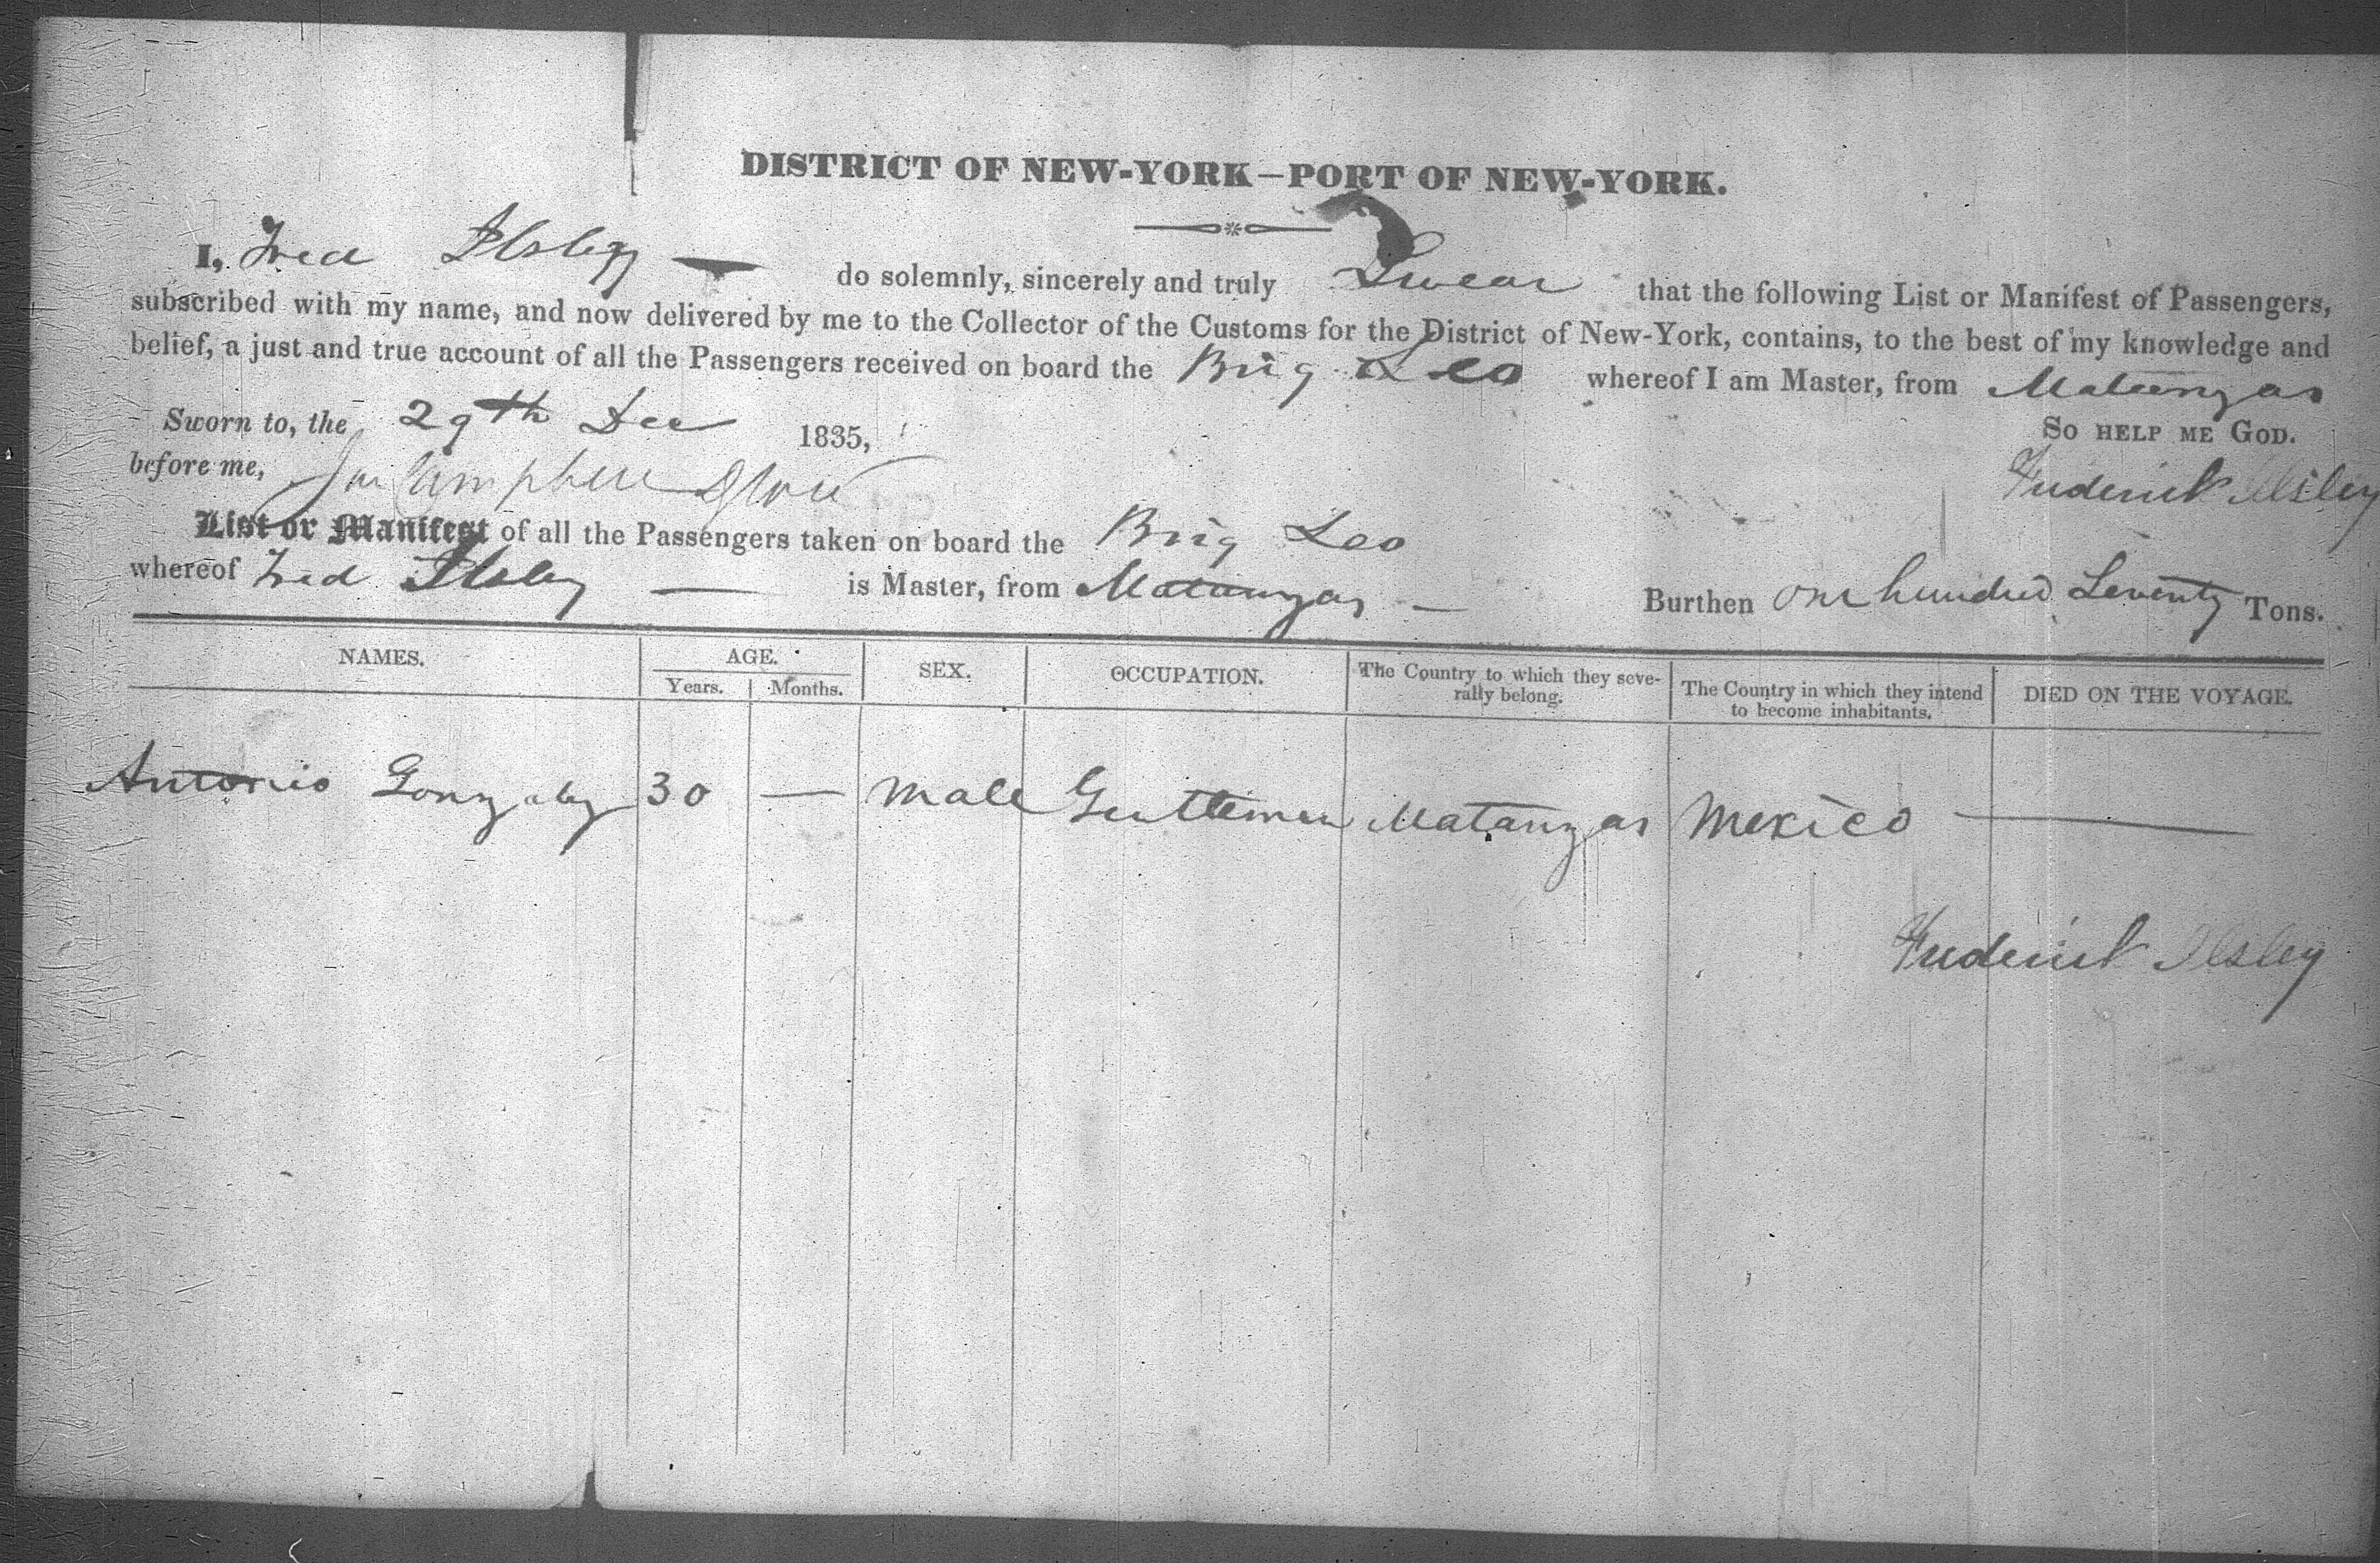 DISTRICT OF NEW-YORK—PORT OF NEW-YORK.
I, Fred Ilsley — do solemnly, sincerely and truly Swear that the following List or Manifest of Passengers,
subscribed with my name, and now delivered by me to the Collector of the Customs for the District of New-York, contains, to the best of my knowledge and
belief, a just and true account of all the Passengers received on board the Brig Leo whereof I am Master, from Matanzas
Sworn to, the 29th Dec 1835, So help me God.
before me, Frederick Ilsley
List or Manifest of all the Passengers taken on board the Brig Leo
whereof Fred Ilsley — is Master, from Matanzas — Burthen One hundred Seventy Tons.
NAMES. AGE. SEX. OCCUPATION. The Country to which they seve-
rally belong. The Country in which they intend
to become inhabitants. DIED ON THE VOYAGE.
Years. Months.
Antonio Gonzalez 30 — Male Gentleman Matanzas Mexico —
Frederick Ilsley